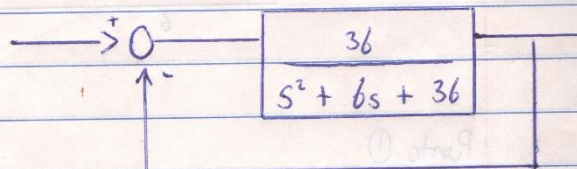 +
36
-
s² + 6s + 36